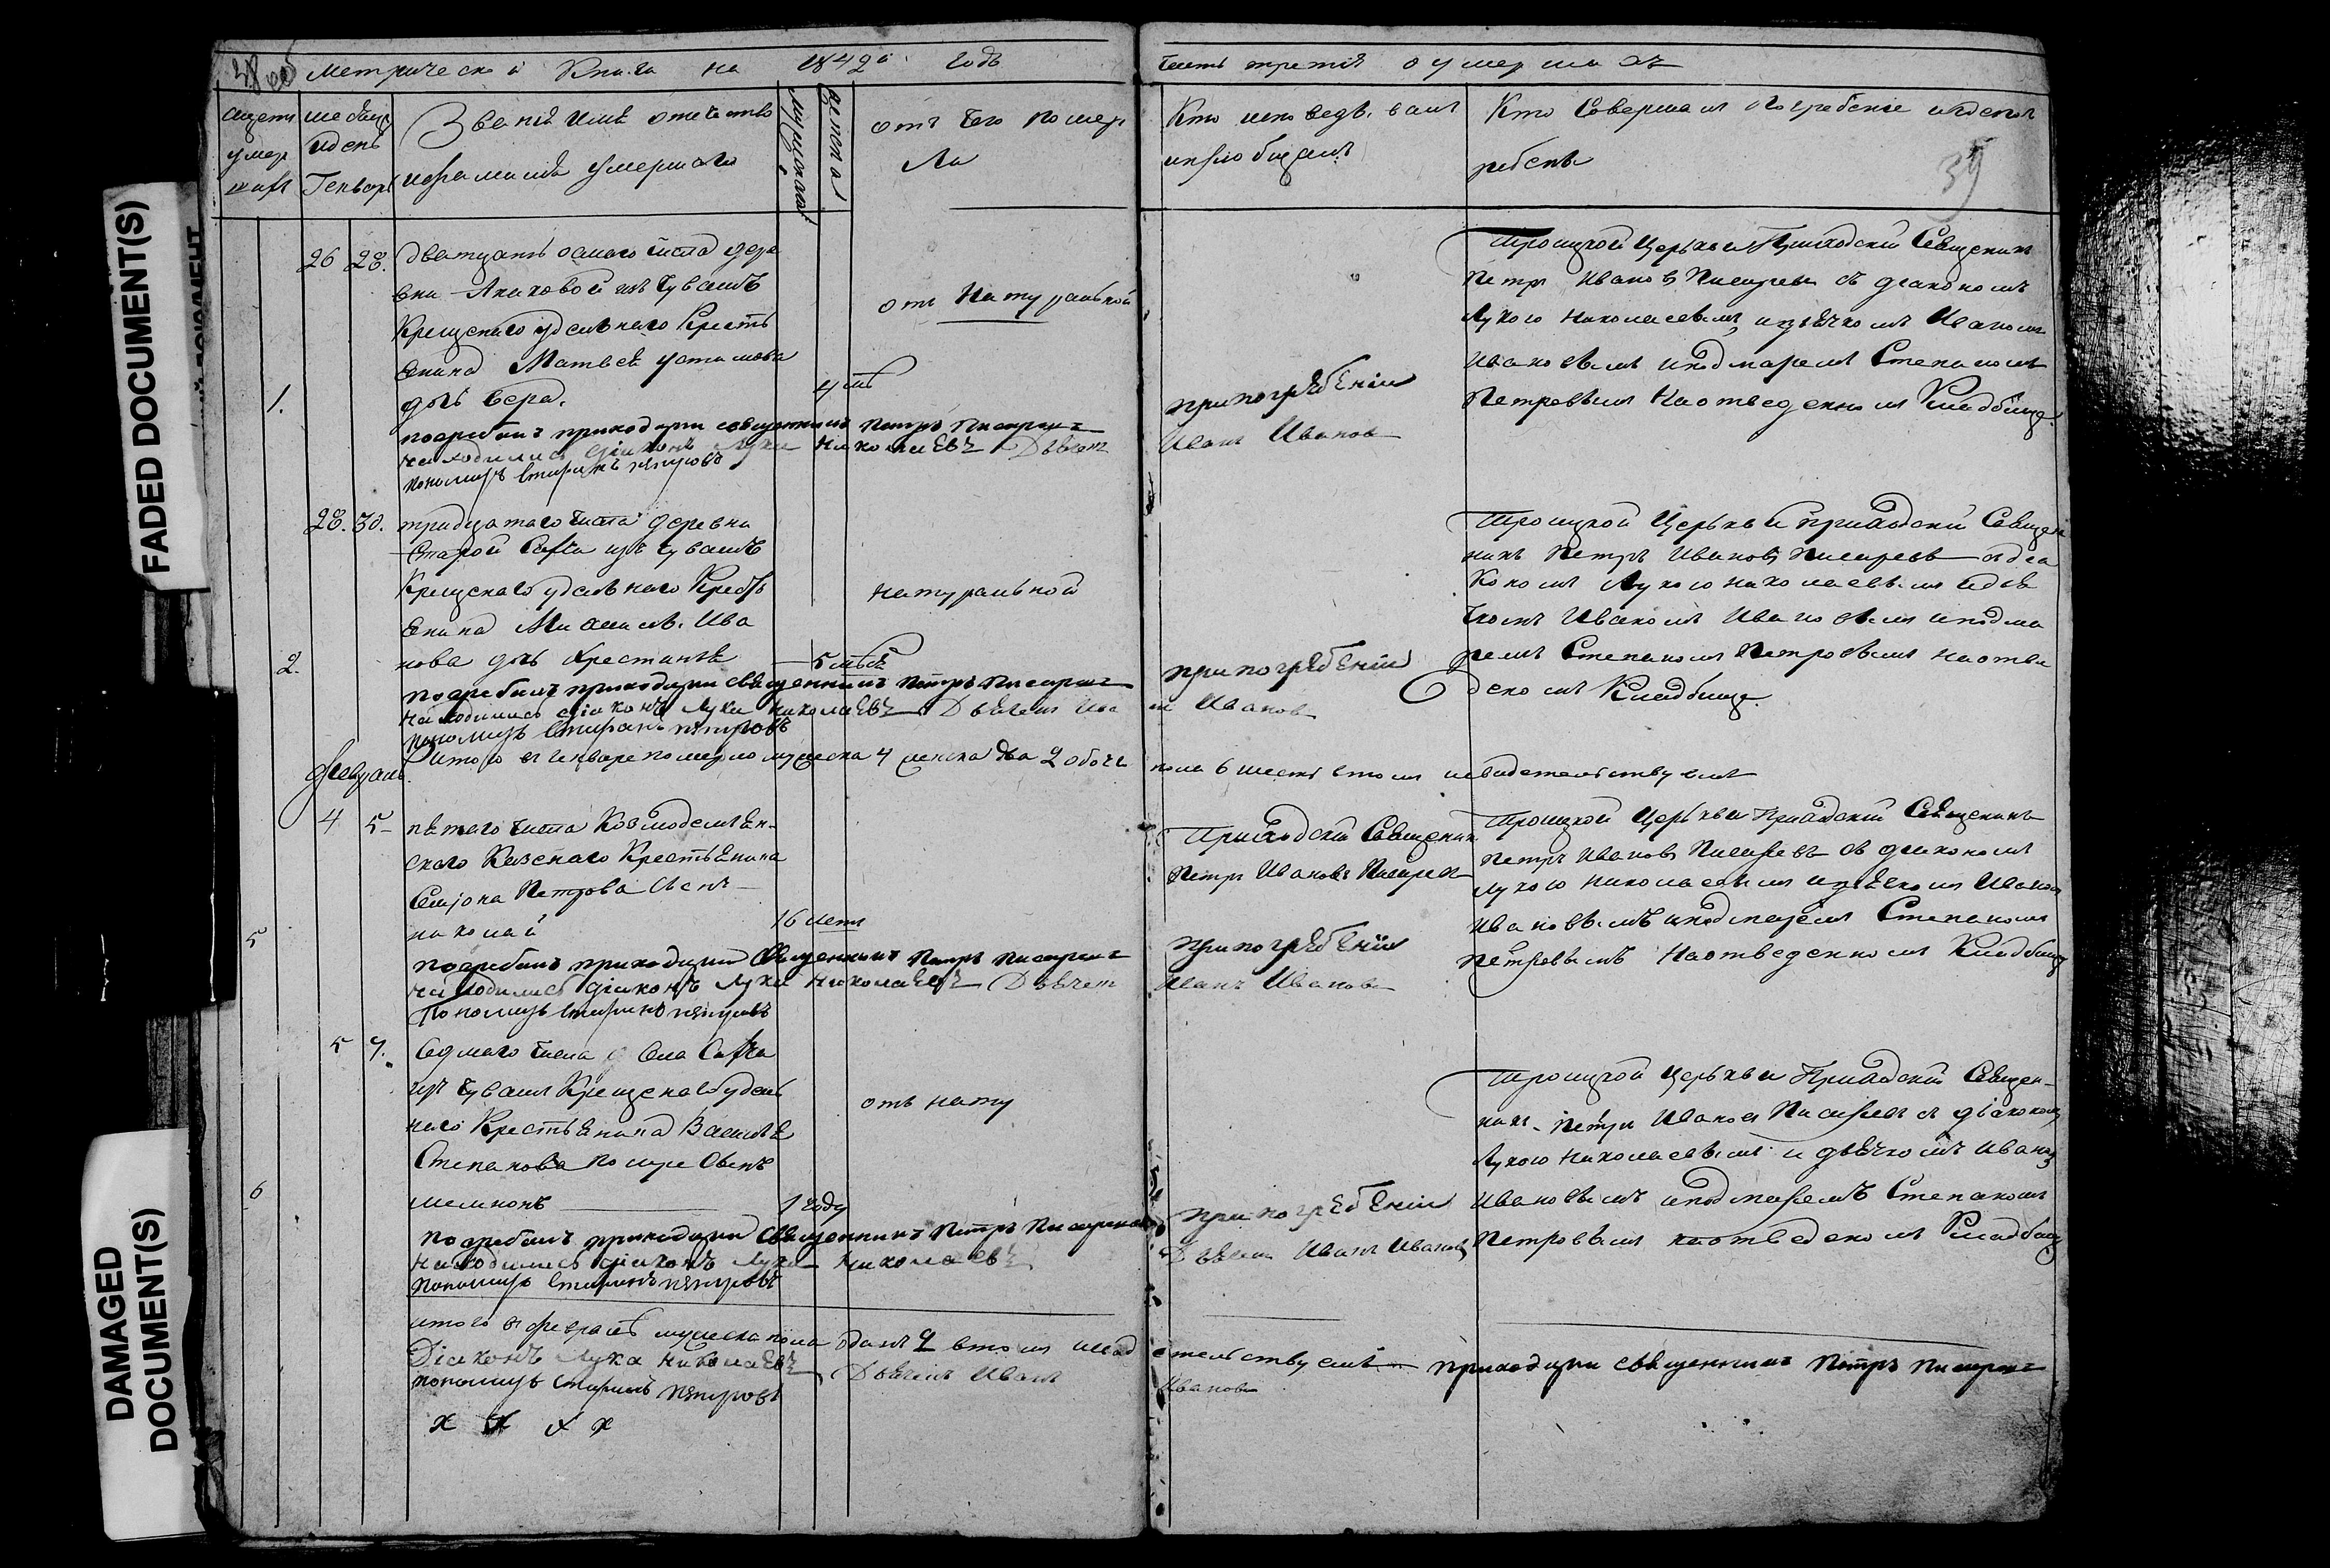 38 об
Метрической Книга на 1842й годъ
Часть третія о умершихъ
Счетъ умершихъ
месецъ и день
Генворь
Званіе имя отечество
и фамилія умершаго
Мужескаго
Женска
отъ чего помер
ла
Кто исповедывалъ
и приобщалъ
Кто Совершалъ Погребеніе и где пог
ребены
39
1.
26 28.
дватцать осмаго числа дере
вни из Чувашъ
Крещенаго удельнаго Кресть
янина Матвея Устимова
дочь Вера.
4
отъ Натуральной
погребалъ приходский священникъ Петръ Писаревъ
находились діяконъ Лука Николаевъ Дьячекъ
пономарь Стефанъ Петровъ
при погребеніи
Иванъ Иванов
Троицкой Церькви Приходскій Священикъ
Петръ Иванов Писаревъ съ диакономъ
Лукою Николаевымъ и дьячкомъ Иваномъ
Ивановымъ и подмаремъ Степаномъ
Петровымъ На отведенномъ Кладбище.
2.
28. 30.
тридцатаго числа деревни
Старой из Чувашъ
Крещенаго удельнаго Кресть
янина Ива
нова дочь Крестинея
5
натуральной
погребалъ приходский священникъ Петръ Писаревъ
находились діяконъ Лука Николаевъ Дьячекъ Ива
нъ Иванов
пономарь Стефанъ Петровъ
при погребеніи
Троицкой Церькви Приходскій Священ
никъ Петръ Ивановъ Писаревъ с диа
кономъ Лукою Николаевымъ и дья
чкомъ Иваномъ Ивановымъ и подма
ремъ Степаномъ Петровымъ на отве
деномъ Кладбище.
Итого въ Генваре померло мужеска 4 женска два 2 обоего
пола 6 шесть в томъ и свидетельствуемъ
Февраль.
5
4 5
пятаго числа Козмодемьян-
скаго Казенаго Крестьянина
Семиона Петрова Сынъ
николай
16 летъ
погребалъ приходский Священникъ Петръ Писаревъ
находились діяконъ Лука Николаевъ Дьячекъ
Пономарь Стефанъ Петровъ
Приходскій Священикъ
Петръ Ивановъ Писарев
при погребеніи
Иванъ Иванов
Троицкой Церькви Приходскій Священикъ
Петръ Ивановъ Писаревъ съ диакономъ
Лукою Николаевымъ и дьячкомъ Иваном
Ивановымъ и подмаремъ Степаномъ
Петровымъ На отведенномъ Кладбищ
6
5 7.
Седмаго числа Села
из Чувашъ Крещенаго удель
наго Крестьянина Василья
Степанова помре Сынъ
1 году
отъ нату
погребалъ приходский Священникъ Петръ Писаревъ
находились діяконъ Лука Николаевъ
пономарь Стефанъ Петровъ
при погребеніи
Дьячекъ Иванъ Иванов
Троицкой Церькви Приходскій Священ-
никъ Петръ Иванов Писаревъ с діакономъ
Лукою Николаевымъ и дьячкомъ Иваном
Ивановымъ и подмаремъ Степаномъ
Петровымъ на отведеномъ Кладбищ
итого в феврале мужеска пола в томъ и свид
етельствуемъ приходский священникъ Петръ Писаревъ
Діяконъ Лука Николаевъ Дьячекъ Иванъ
Иванов
пономарь Стефанъ Петровъ
х х х х
FADED DOCUMENT(S)
DAMAGED
DOCUMENT(S)